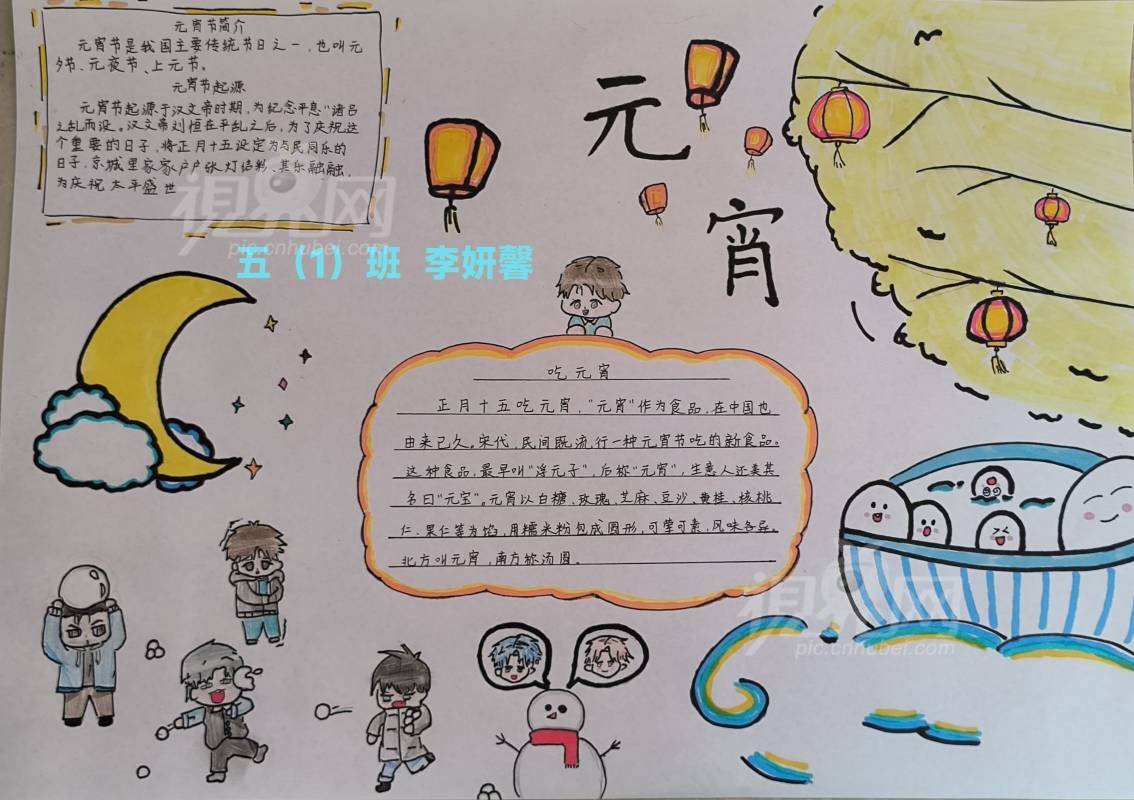 元宵节简介
元宵节是我国主要传统节日之一，也叫元
夕节、元夜节、上元节。
元宵节起源
元宵节起源于汉文帝时期，为纪念平息"诸吕
之乱而设。汉文帝刘恒在平乱之后，为了庆祝这
个重要的日子，将正月十五设定为与民同乐的
日子，京城里家家户户张灯结彩、其乐融融，
为庆祝太平盛世
元
宵
视界网
pic.cnhubei.com
五（1）班 李妍馨
吃元宵
正月十五吃元宵，"元宵"作为食品，在中国也
由来已久。宋代，民间既流行一种元宵节吃的新食品。
这种食品，最早叫"浮元子"，后称"元宵"，生意人还美其
名曰"元宝"。元宵以白糖、玫瑰、芝麻、豆沙、黄桂、核桃
仁、果仁等为馅，用糯米粉包成圆形，可荤可素，风味各异。
北方叫元宵，南方称汤圆。
视界网
pic.cnhubei.com